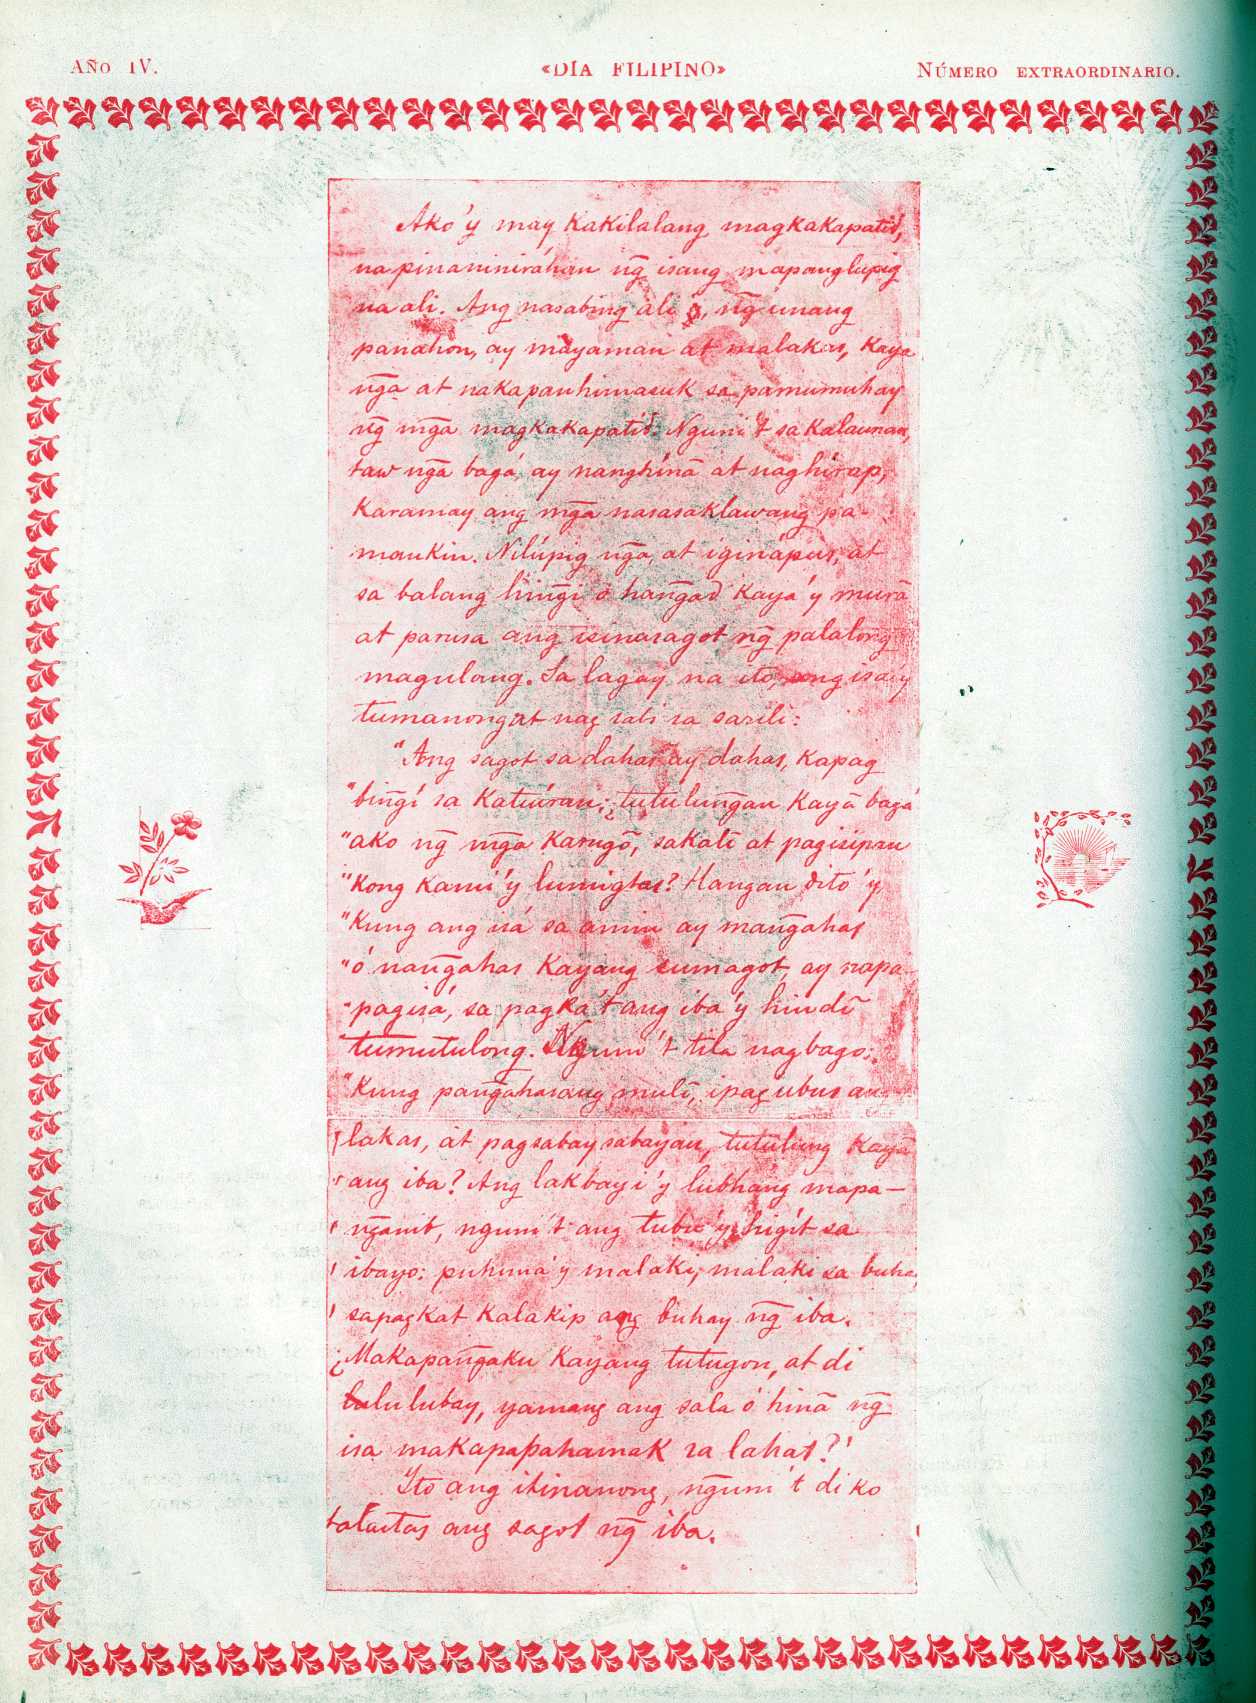 AÑO IV.
«DÍA FILIPINO»
NÚMERO EXTRAORDINARIO.
Ako'y may kakilalang magkakapatid,
na pinaninirahan ng̃ isang mapanglupig
na ali. Ang nasabing ali, ng̃ unang
panahon, ay mayaman at malakas, kaya
ng̃a at nakapanhimasuk sa pamumuhay
ng̃ mg̃a magkakapatid. Nguni't sa kalaunan,
taw ng̃a bagá, ay nanghinā at naghirap,
karamay ang mg̃a nasasaklawang pa-
mankin. Nilúpig ng̃a, at iginápus, at
sa balang hing̃i ó hang̃ad kayá'y murā
at parusa ang isinasagot ng̃ palalong
magulang. Sa lagay na ito, ang isa'y
tumanong at nag sabi sa sarili:
"Ang sagot sa dahas ay dahas, kapag
"bing̃i sa katuiran; ¿tutulung̃an kayā bagá
"ako ng̃ mg̃a karugō, sakalī at pagisipan
"kong kami'y lumigtas? Hangan dito'y,
"kung ang isá sa amin ay mang̃ahas
"ó nang̃ahas kayang sumagot, ay napa-
"pagisá, sa pagka't ang iba'y hindī
"tumutulong. Nguni't tila nagbago;
"kung pang̃ahasang mulī, ipag ubus ang
lakas, at pagsabay sabayan, tutulung kayā
ang iba? Ang lakbayi'y lubhang mapa-
ng̃anib, nguni't ang tubu'y higít sa
ibayo: puhuna'y malaki, malaki sa buhay
sapagkat kalakip ang buhay ng̃ iba.
¿Makapang̃aku kayang tutugon, at di
lulubay, yamang ang sala ó hinā ng̃
isa makapapahamak sa lahat?"
Ito ang itinanong, ng̃uni't di ko
talastas ang sagot ng̃ iba.